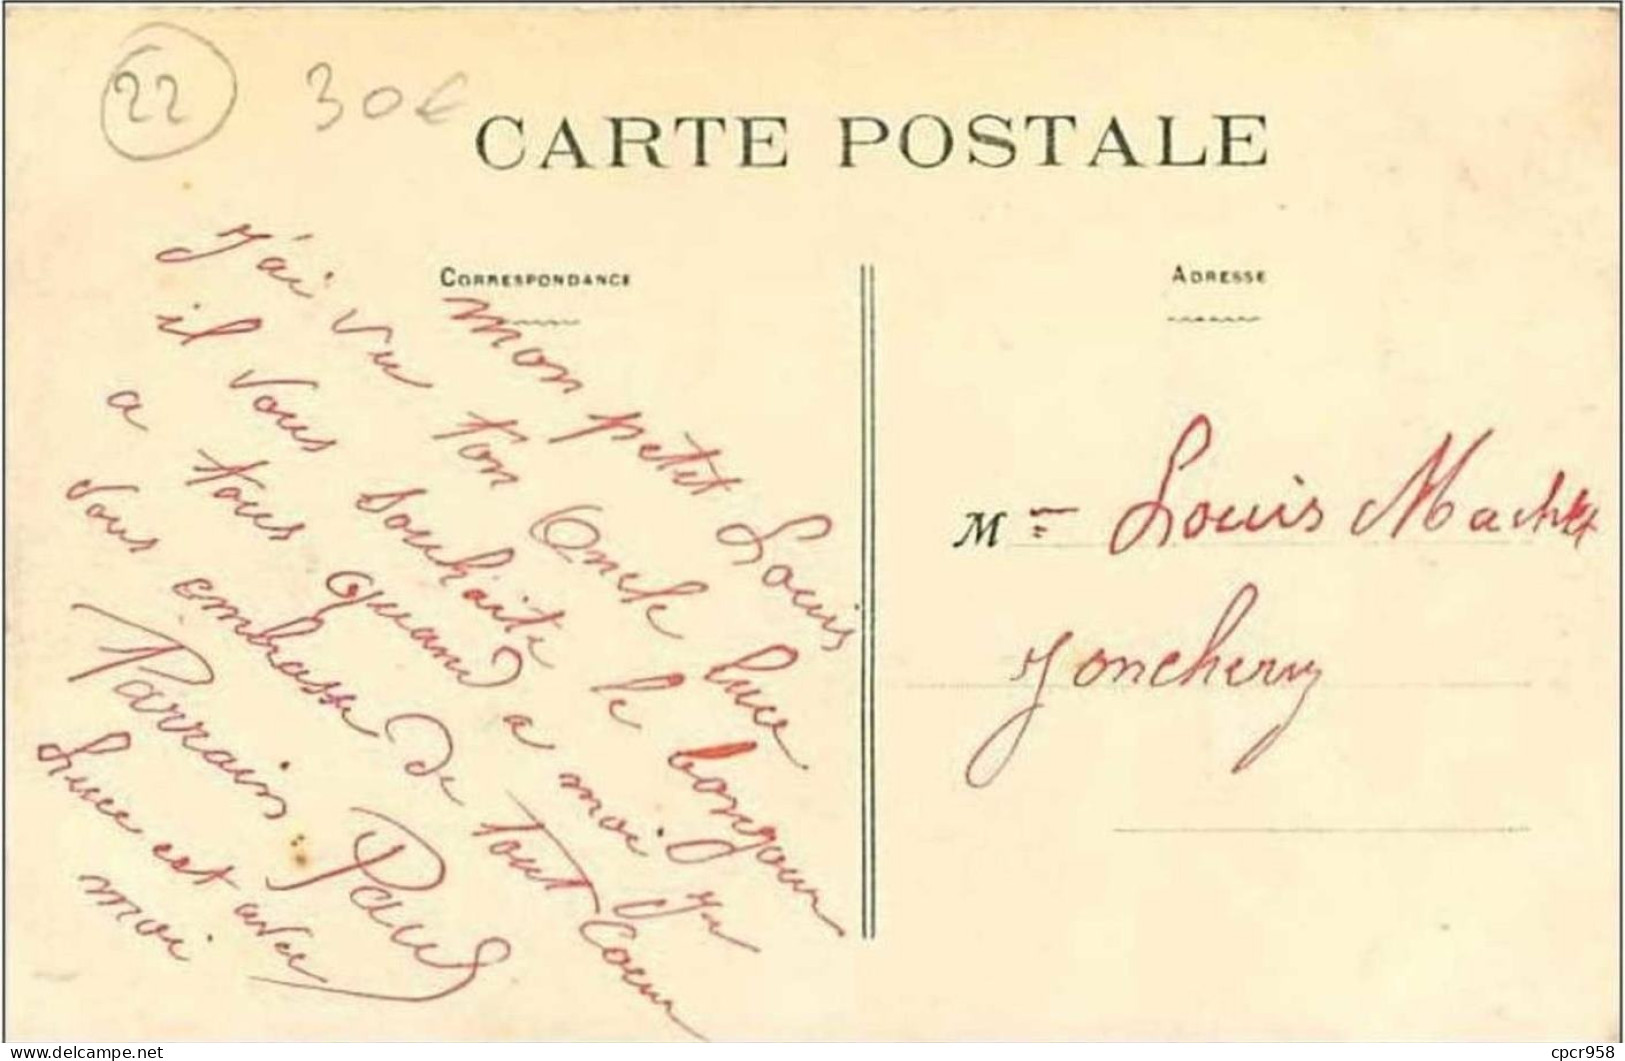 22
30€
CARTE POSTALE
CORRESPONDANCE
ADRESSE
mon petit Louis
J'ai vu ton Oncle Luce
il vous souhaite le bonjour
a tous quand a moi je
vous embrasse de tout Coeur
Parrain : Paul
Luce est avec
moi
M Louis
Jonchery
www.delcampe.net
cpcr958